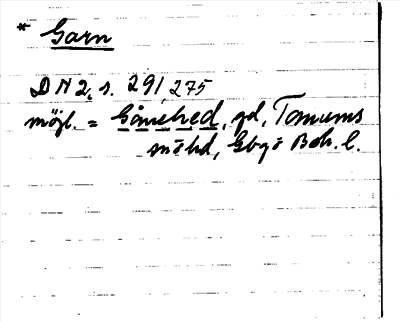 * Garn
DN 2, s. 291, 275
möjl. = Gånehed, gd, Tanums
sn o hd, Gbg o Boh. l.